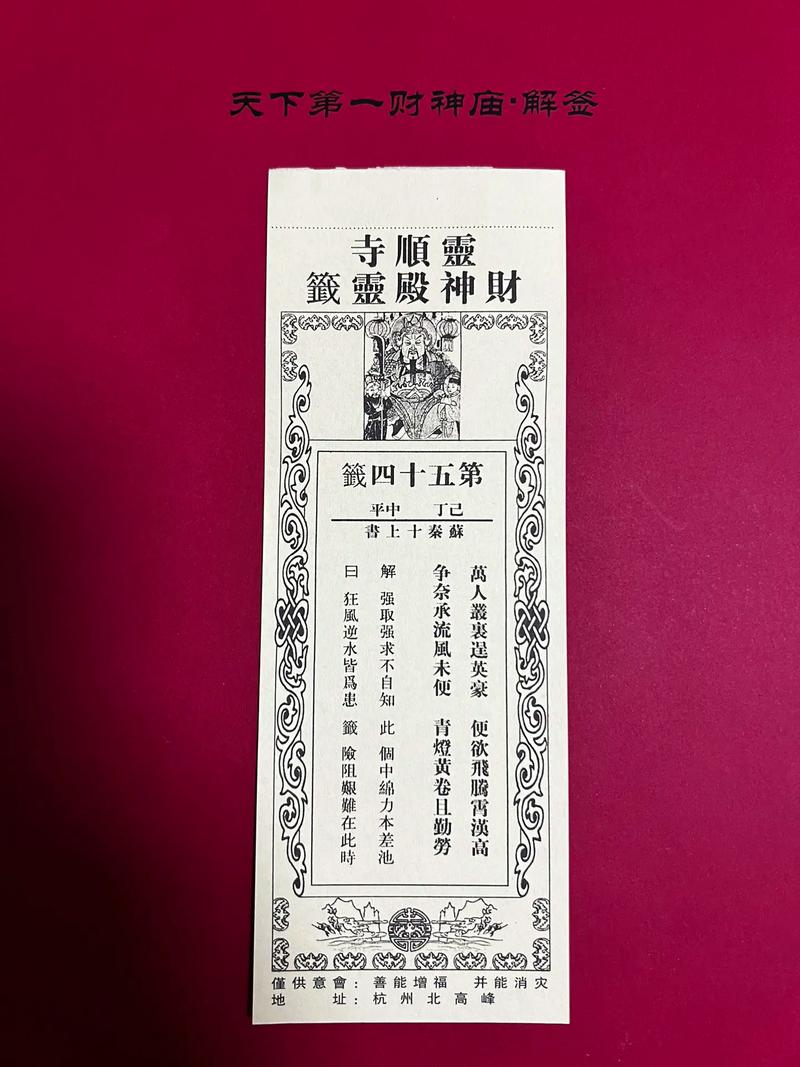 天下第一财神庙·解签
靈順寺
財神殿靈籤
第五十四籤
己丁 中平
蘇秦十上書
萬人叢裏逞英豪 便欲飛騰霄漢高
争奈承流風未便 青燈黃卷且勤勞
解 强取强求不自知 此 個中綿力本差池
曰 狂風逆水皆爲患 籤 險阻艱難在此時
僅供意會：善能增福 并能消灾
地址：杭州北高峰